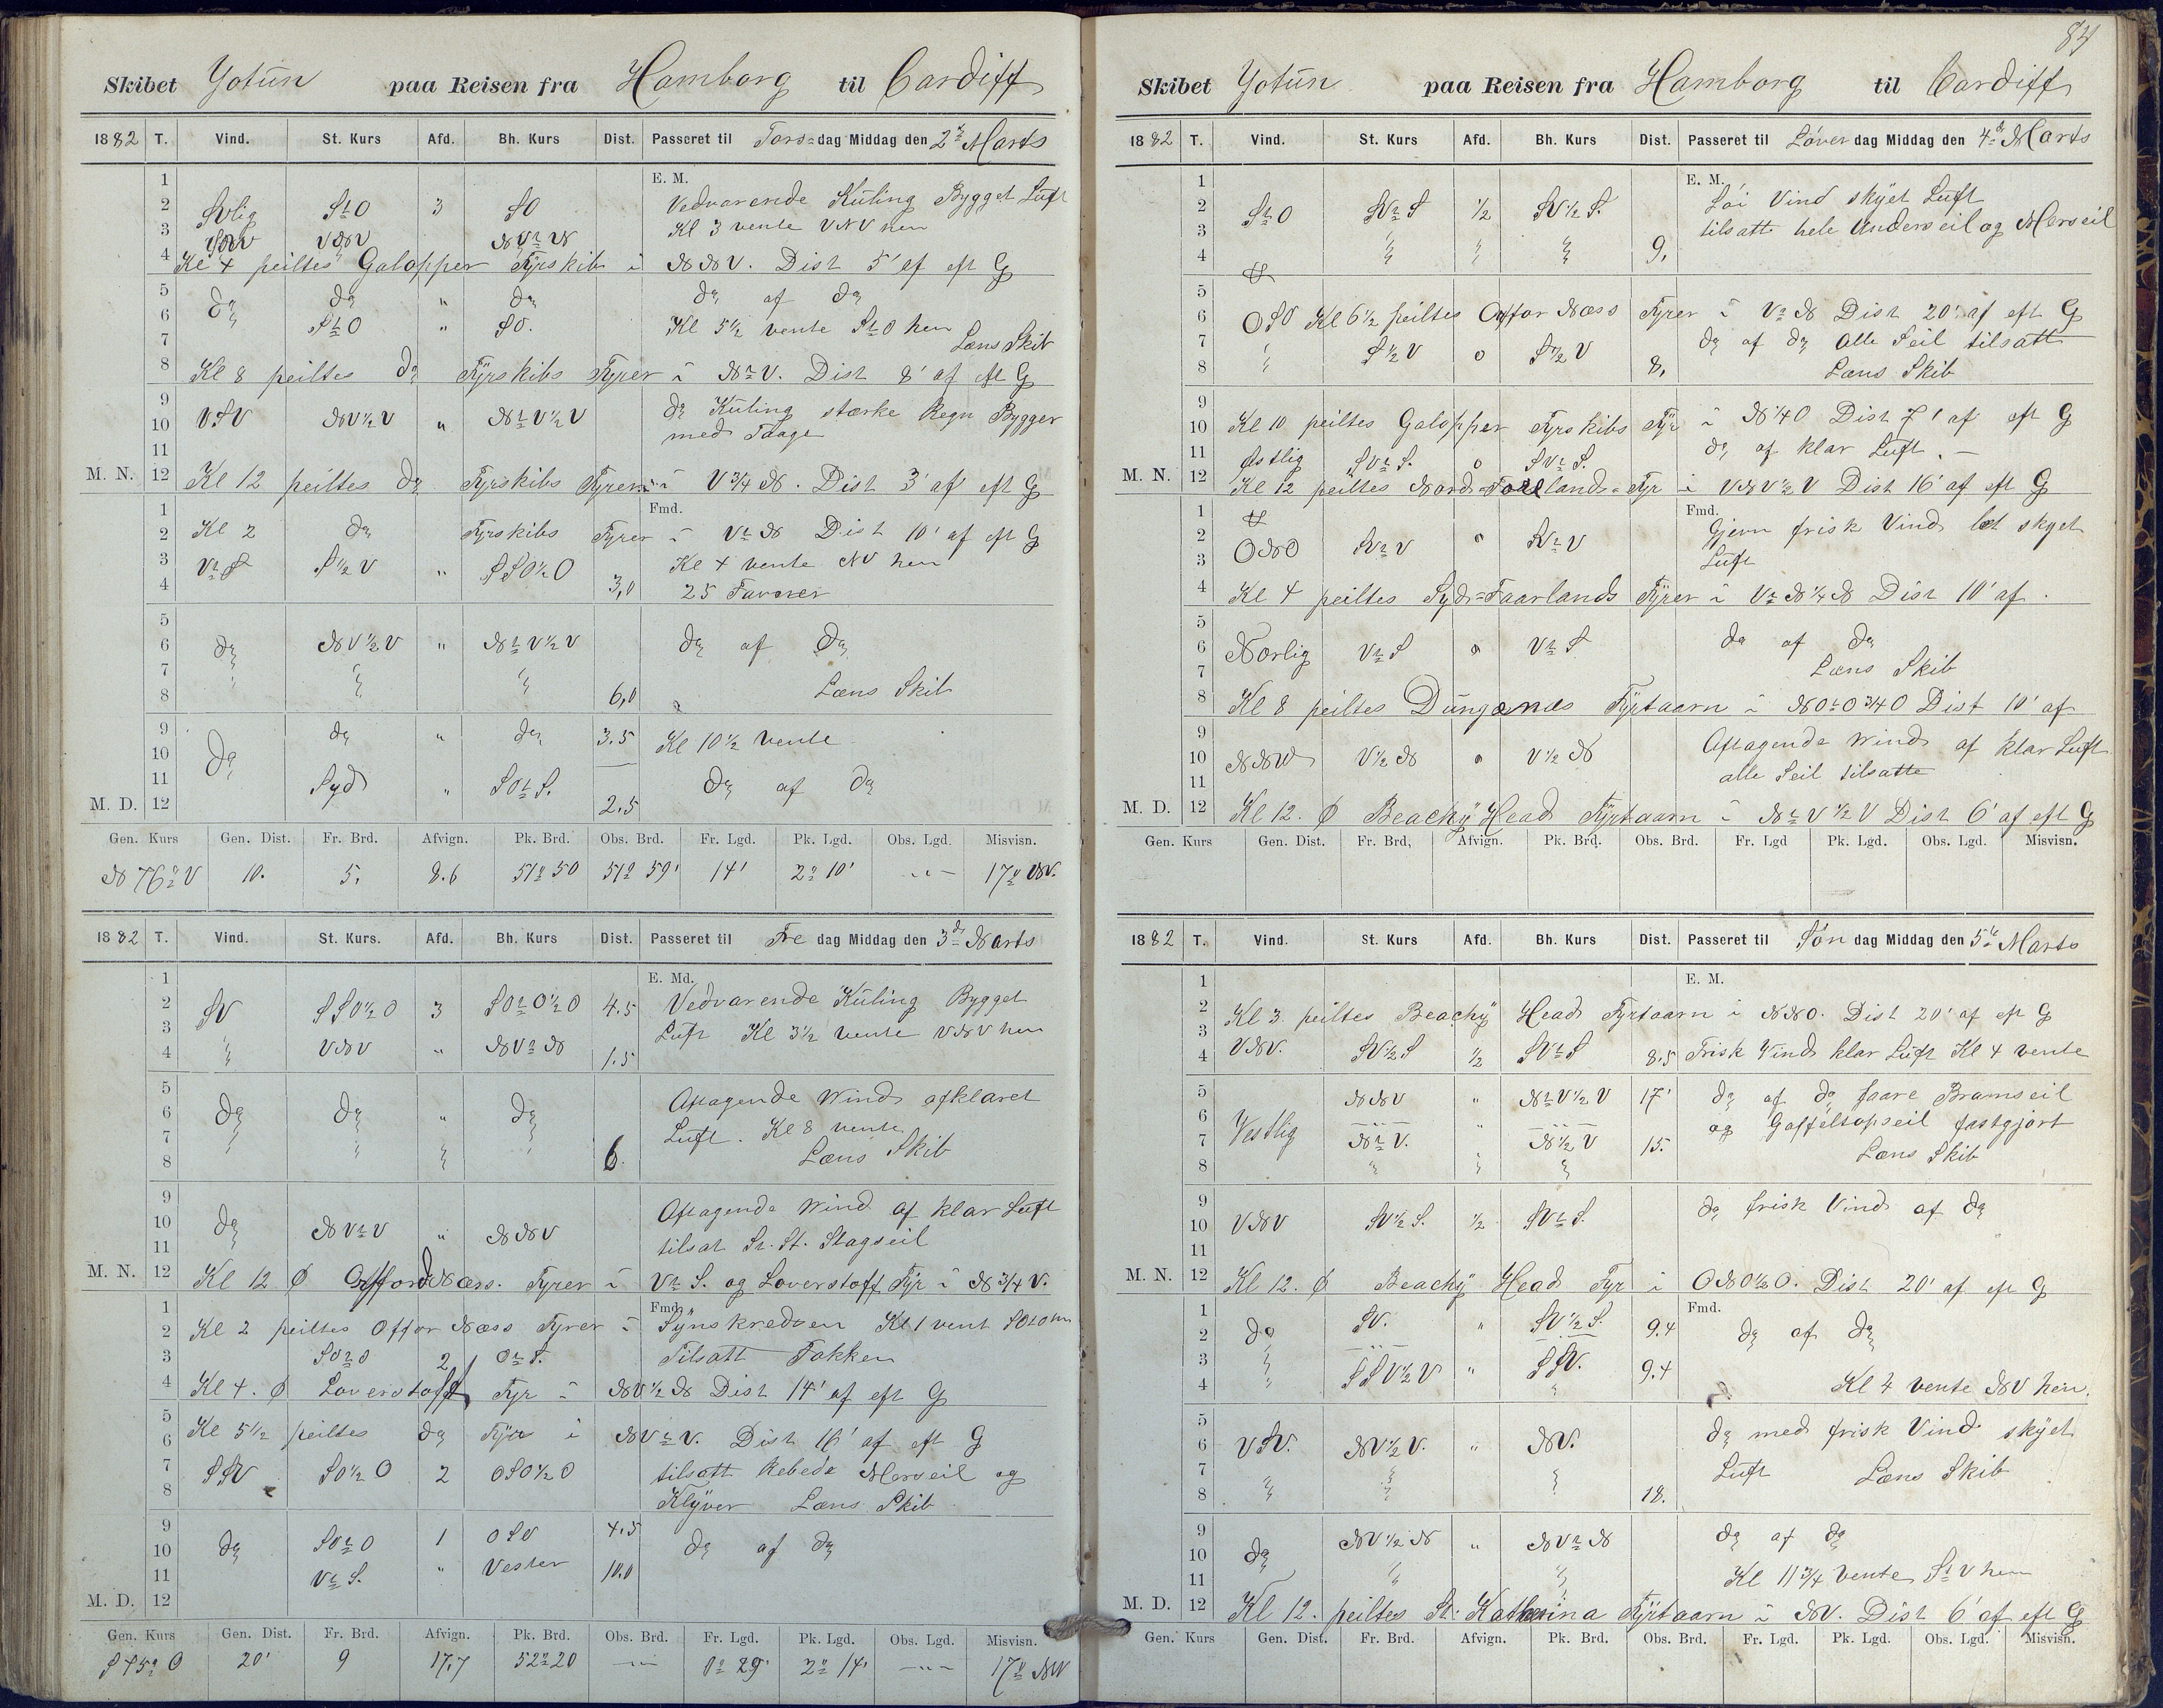 Skibet Yotün paa Reisen fra Hamborg til Cardiff
1882 T. Vind. St. Kurs Afd. Bh. Kurs Dist. Passeret til Tors=dag Middag den 2d Marts
1 E. M.
2 SVlig StO 3 SO Vedvarende Küling Bygget Luft
3 VNV NVtN Kl 3 vente VNV hen
4 Kl 4 peiltes Galopper Fyrskib i NNV. Dist 5' af eft G
5 do do " do do af do
6 StO " SO. Kl 5½ vente StO hen
7 Læns Skib
8 Kl 8 peiltes do Fyrskibs Fyrer i NtV. Dist 8' af eft G
9 do Küling stærke Regn Bygger
10 VSV NV½V " NtV½V med Taage
11
M. N. 12 Kl 12 peiltes do Fyrskibs Fyrer i V¾N. Dist 3' af eft G
1 Fmd.
2 Kl 2 do Fyrskibs Fyrer i VtN Dist 10' af eft G
3 VtS S½V " SSO½O Kl 4 vente NV hen
4 3,0 25 Favner
5
6 do NV½V " NtV½V do af do
7
8 6,0 Læns Skib
9 do " do 3.5 Kl 10½ vente
10 do
11 Syd " SOtS. do af do
M. D. 12 2.5
Gen. Kurs Gen. Dist. Fr. Brd. Afvign. Pk. Brd. Obs. Brd. Fr. Lgd. Pk. Lgd. Obs. Lgd. Misvisn.
N 76° V 10. 5. 8.6 51° 50 51° 59' 14' 2° 10' 17° NV.
1882 T. Vind. St. Kurs. Afd. Bh. Kurs Dist. Passeret til Fre dag Middag den 3d Marts
1 E. Md.
2 SV SSO½O 3 SOtO½O 4.5 Vedvarende Küling Bygget
3 Luft Kl 3½ vente VNV hen
4 VNV " NVtN 1.5
5 Aftagende Wind afklaret
6 do do " do
7 Luft. Kl 8 vente
8 6. Læns Skib
9 Aftagende Wind af klar Luft
10 do NVtV " NNV
11 tilsat St. Stagseil
M. N. 12 Kl 12 Ø Offord Næss. Fyrer i VtS. og Loverstoff Fyr i N¾V.
1 Fmd.
2 Kl 2 peiltes Offor Næss Fyrer i Synskredsen Kl 1 vent SOtO hen
3 SOtO 2 OtS. Tilsatt Fokken
4 Kl 4. Ø Loverstoff Fyr i NV½N Dist 14' af eft G
5 Kl 5½ peiltes do Fyr i NVtV. Dist 16' af eft G
6
7 SSV SO½O 2 OSO½O tilsatt Rebede Merseil og
8 Klyver Læns Skib
9 4.5
10 do SOtO 1 OSO do af do
11 VtS. " Vester 10.0
M. D. 12
Gen. Kurs Gen. Dist. Fr. Brd. Afvign. Pk. Brd. Obs. Brd. Fr. Lgd. Pk. Lgd. Obs. Lgd. Misvisn.
S 45° O 20' 9 17,7 52° 20 0° 29' 2° 14' 17° NW
84
Skibet Yotün paa Reisen fra Hamborg til Cardiff
1882 T. Vind. St. Kurs Afd. Bh. Kurs Dist. Passeret til Löver dag Middag den 4d Marts
1 E. M.
2 StO SVtS ½ SV½S. Löi Vind skyet Luft
3 tilsatt hele Underseil og Merseil
4 9.
5
6 OSO Kl 6½ peiltes Offor Næss Fyrer i VtN Dist 20' af eft G
7 S½V o S½V do af do Alle Seil tilsatt
8 8. Læns Skib
9
10 Kl 10 peiltes Galopper Fyrskibs Fyr i N¼O Dist 7' af eft G
11 Østlig SVtS. o SVtS. do af klar Luft.
M. N. 12 Kl 12 peiltes Nord=Forlands=Fyr i VNV½V Dist 16' af eft G
1 Fmd.
2 ONO SVtV o SVtV Gjevn frisk Vind let skyet
3 Luft
4 Kl 4 peiltes Syd=Faarlands Fyrer i VtN¼N Dist 10' af.
5
6 Norlig VtS o VtS do af do
7 Læns Skib
8 Kl 8 peiltes Düngenæs Fyrtaarn i NOtO¾O Dist 10' af
9
10 NNW V½N o V½N Aftagende Wind af klar Luft
11 alle Seil tilsatte
M. D. 12 Kl 12. Ø Beachÿ Head Fyrtaarn i NtV½V Dist 6' af eft G
Gen. Kurs Gen. Dist. Fr. Brd. Afvign. Pk. Brd. Obs. Brd. Fr. Lgd Pk. Lgd. Obs. Lgd. Misvisn.
1882 T. Vind. St. Kurs Afd. Bh. Kurs Dist. Passeret til Søn dag Middag den 5te Marts
1 E. M.
2 Kl 3 peiltes Beachÿ Head Fyrtaarn i NNO. Dist 20' af eft G
3
4 VNV. SV½S ½ SVtS 8.5 Frisk Vind klar Luft Kl 4 vente
5 NNV " NtV½V 17' do af do faare Bramseil
6 og Gaffeltopseil fastgjort
7 Vestlig NtV. N½V 15.
8 Læns Skib
9 do frisk Vind af do
10 VNV SV½S. ½ SVtS.
11
M. N. 12 Kl 12. Ø Beachÿ Head Fyr i ONO½O. Dist 20' af eft G
1 Fmd.
2 do SV. " SV½S. 9.4 do af do
3 SSV½V " SSV. 9.4
4 Kl 4 vente NV hen.
5
6 VSV. NV½V. " NV. do med frisk Vind skyet
7 Luft Læns Skib
8 18.
9 do af do
10 do NV½N " NVtN
11 Kl 11¾ vente StV hen
M. D. 12 Kl 12. peiltes St. Katherina Fyrtaarn i NV. Dist 6' af eft G
Gen. Kurs Gen. Dist. Fr. Brd. Afvign. Pk. Brd. Obs. Brd. Fr. Lgd. Pk. Lgd. Obs. Lgd. Misvisn.